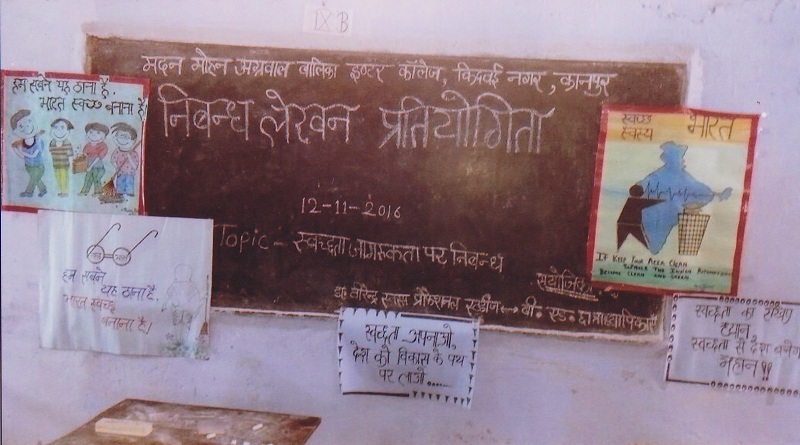 IX B
मदन मोहन अग्रवाल बालिका इण्टर कॉलेज, किदवई नगर, कानपुर
निबन्ध लेखन प्रतियोगिता
12-11-2016
Topic:- स्वच्छता जागरुकता पर निबन्ध
संयोजिका
बी. एड. छात्राध्यापिकाएं
हम सबने यह ठाना है,
भारत स्वच्छ बनाना है।
हम सबने
यह ठाना है.
भारत स्वच्छ
बनाना है।
स्वच्छता अपनाओ,
देश को विकास के पथ
पर लाओ....
स्वच्छ भारत
स्वस्थ
IF KEEP YOUR AREA CLEAN
BECOME CLEAN AND GREEN
स्वच्छता का रखिए
ध्यान
स्वच्छता से देश बनेगा
महान !!